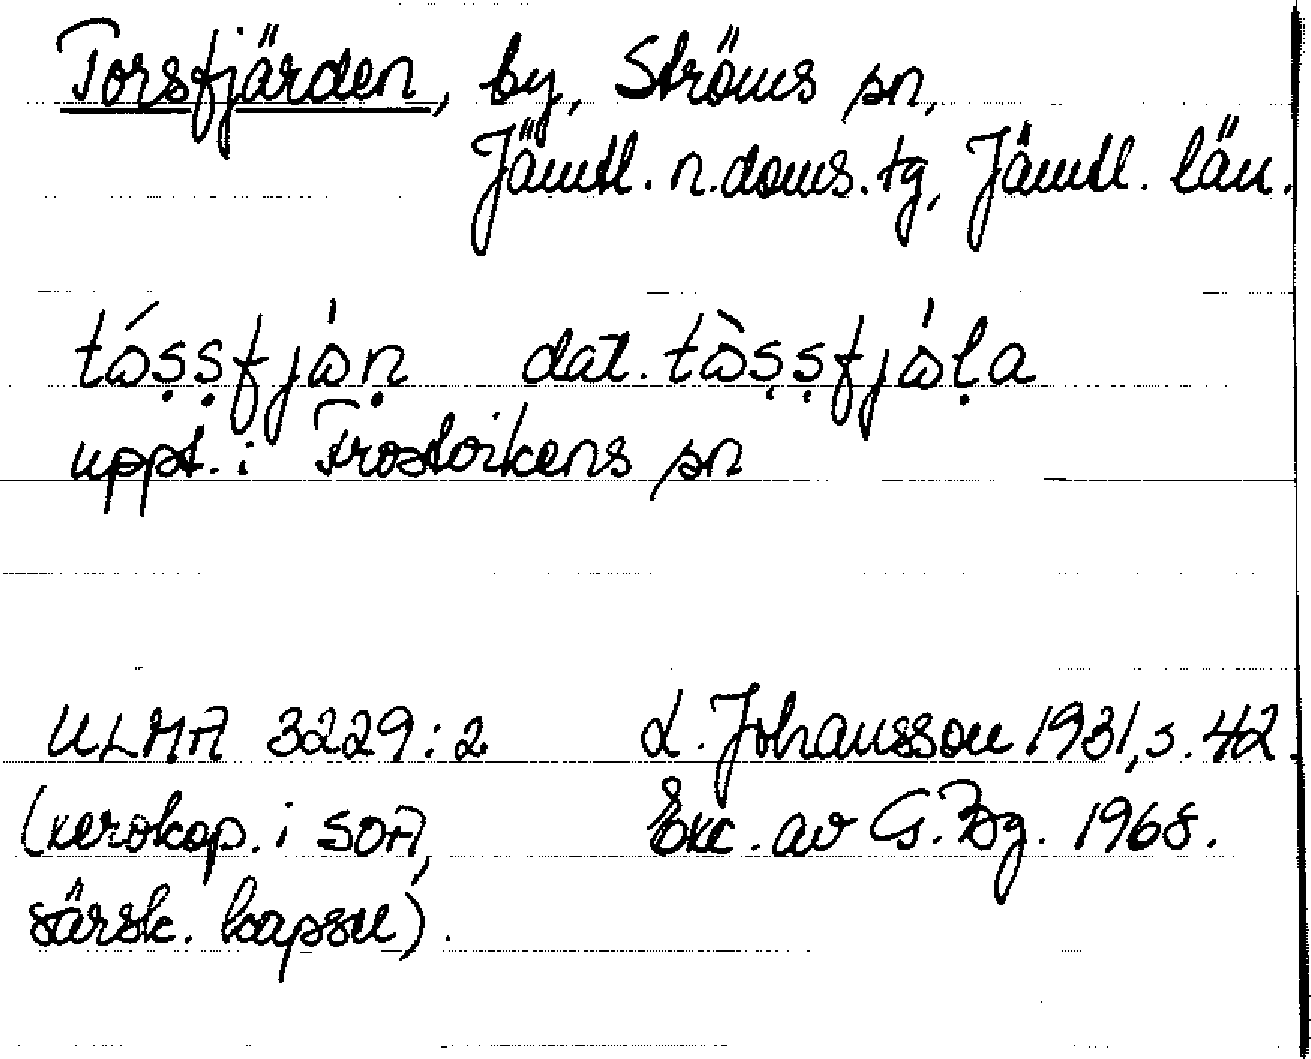 Torsfjärden, by, Ströms sn,
Jämtl. n. doms. tg, Jämtl. län.
tá̀ṣṣfjàṇ dat. tàṣṣfjàḷa
uppt. i Frostvikens sn
ULMA 3229:2 L. Johansson 1931, s. 42.
(xerokop. i SOA, Exc. av G. Bg. 1968.
särsk. kapsel).